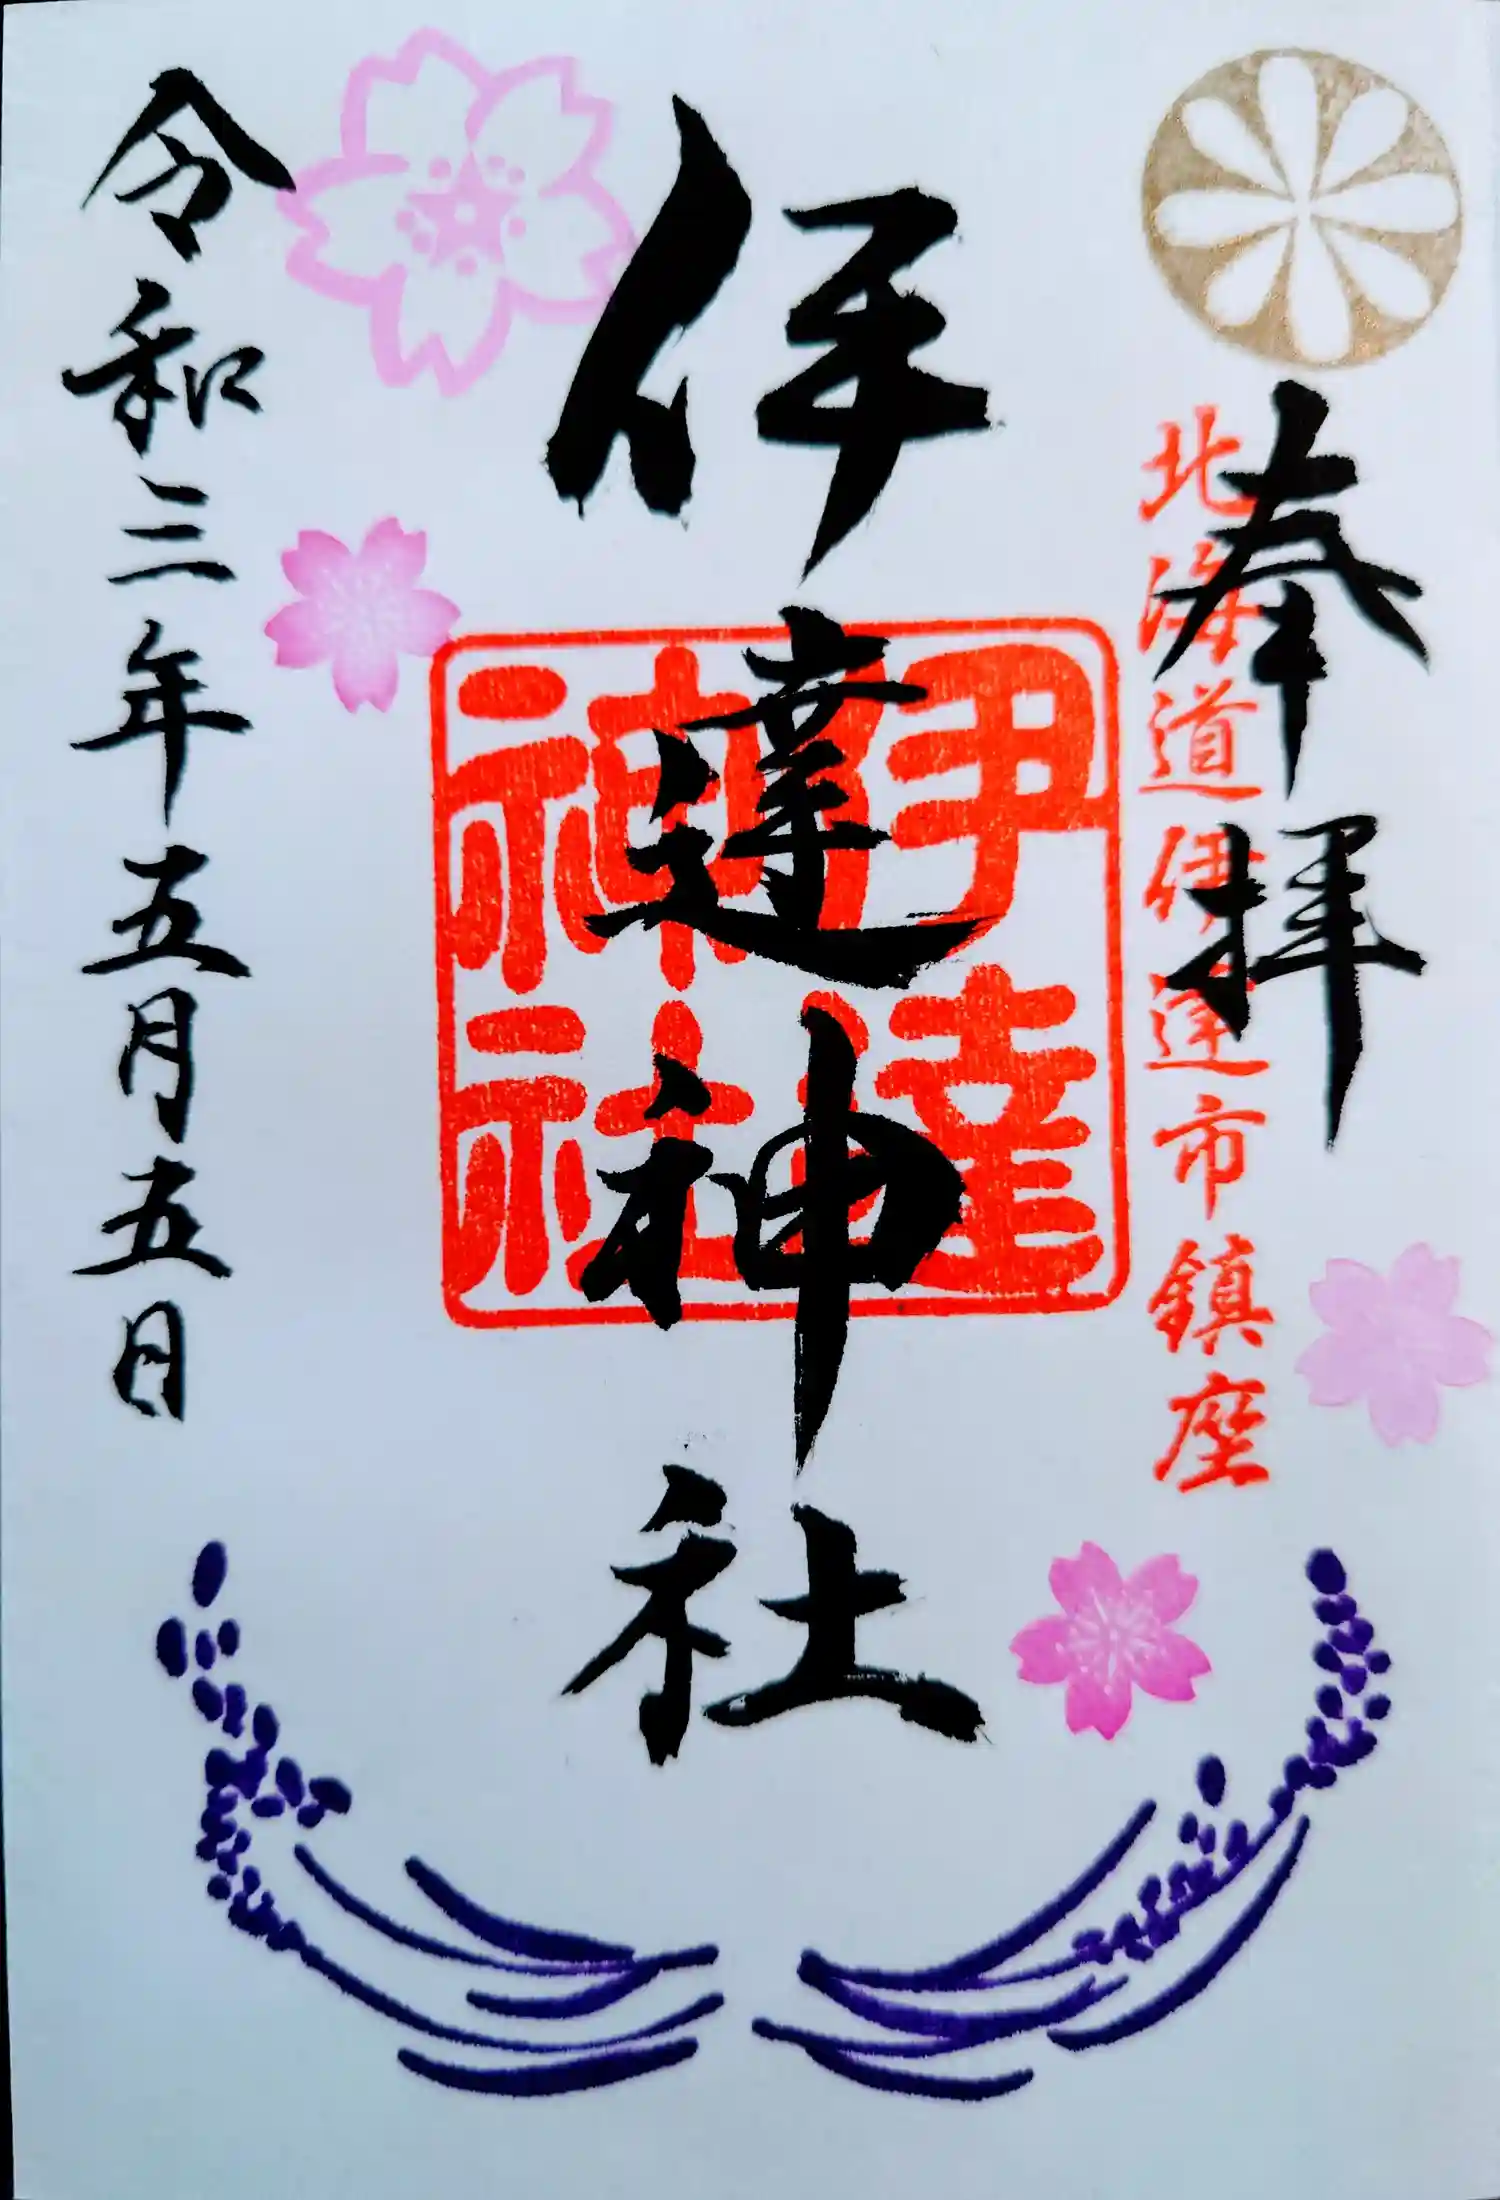 奉拝
北海道伊達市鎮座
伊達神社
伊達
神社
令和三年五月五日